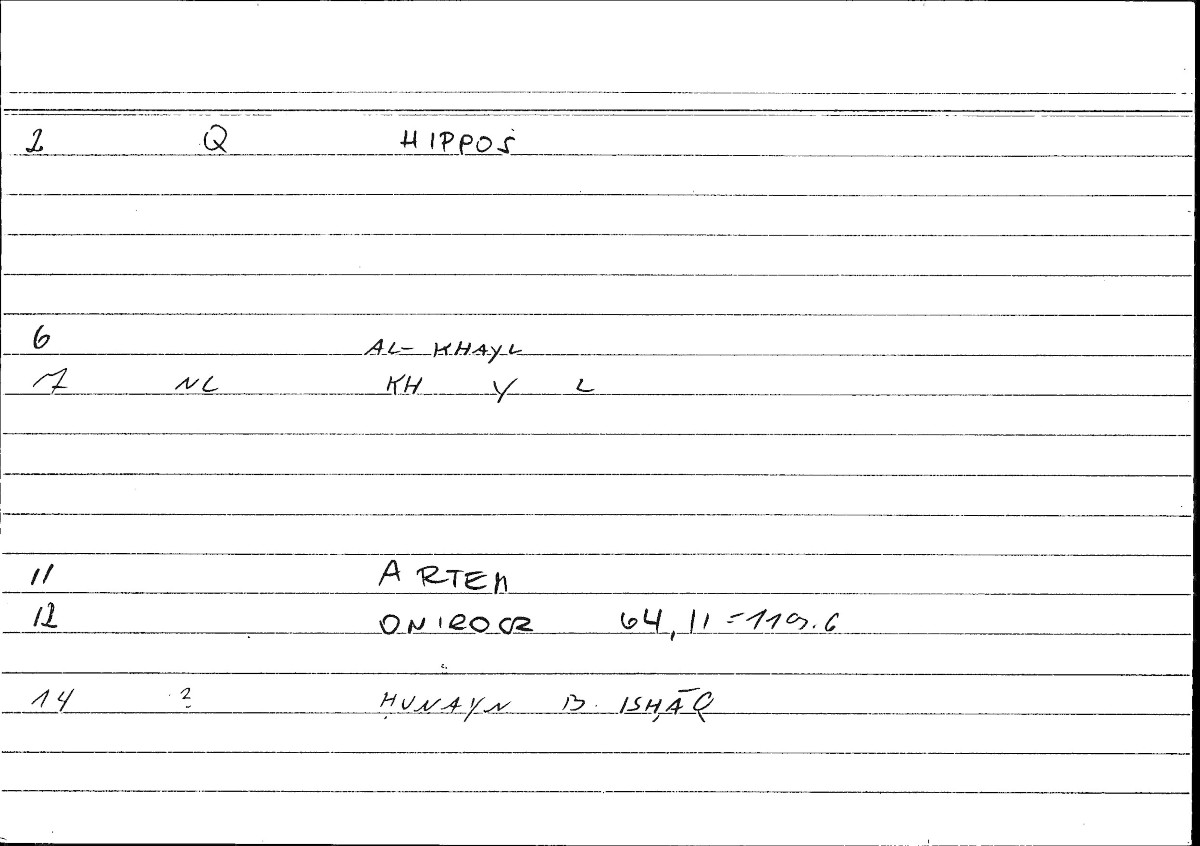 2 Q HIPPOS
6 AL-KHAYL
7 NL KH Y L
11 ARTEM
12 ONIROCR 64,11=119.6
14 ? ḤUNAYN B. ISḤĀQ